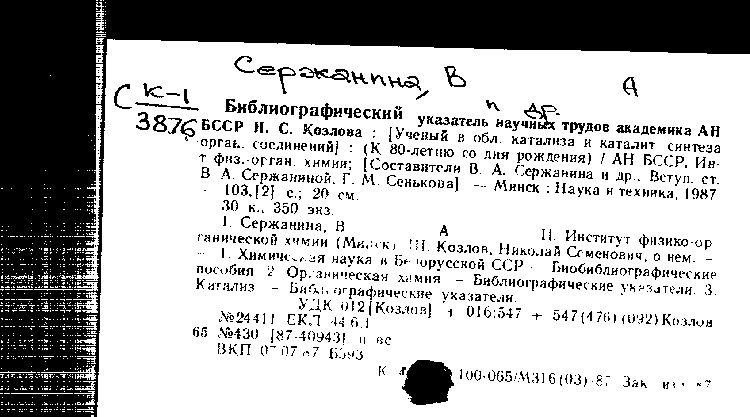 Сержанина, В А
и др.
С К-1
3876
Библиографический указатель научных трудов академика АН
БССР Н. С. Козлова : [Ученый в обл. катализа и каталит синтеза
орган. соединений] : (К 80-летию со дня рождения) / АН БССР, Ин-
т физ.-орган. химии; [Составители В. А. Сержанина и др., Вступ. ст.
В А. Сержаниной, Г. М. Сенькова] — Минск : Наука и техника, 1987
- 103,[2] с.; 20 см.
30 к., 350 экз.
I. Сержанина, В А II. Институт физико-ор
ганической химии (Минск) III. Козлов, Николай Семенович, о нем. –
– 1. Химическая наука в Белорусской ССР – Биобиблиографические
пособия 2 Органическая химия – Библиографические указатели. 3.
Катализ – Библиографические указатели.
УДК 012[Козлов] + 016:547 + 547(476)(092)Козлов
№24411 ЕКЛ 44 6.1
65 №430 [87-40943] п вс
ВКП 07 07 87 Б593
К 100-065/М316(03)-87 Зак